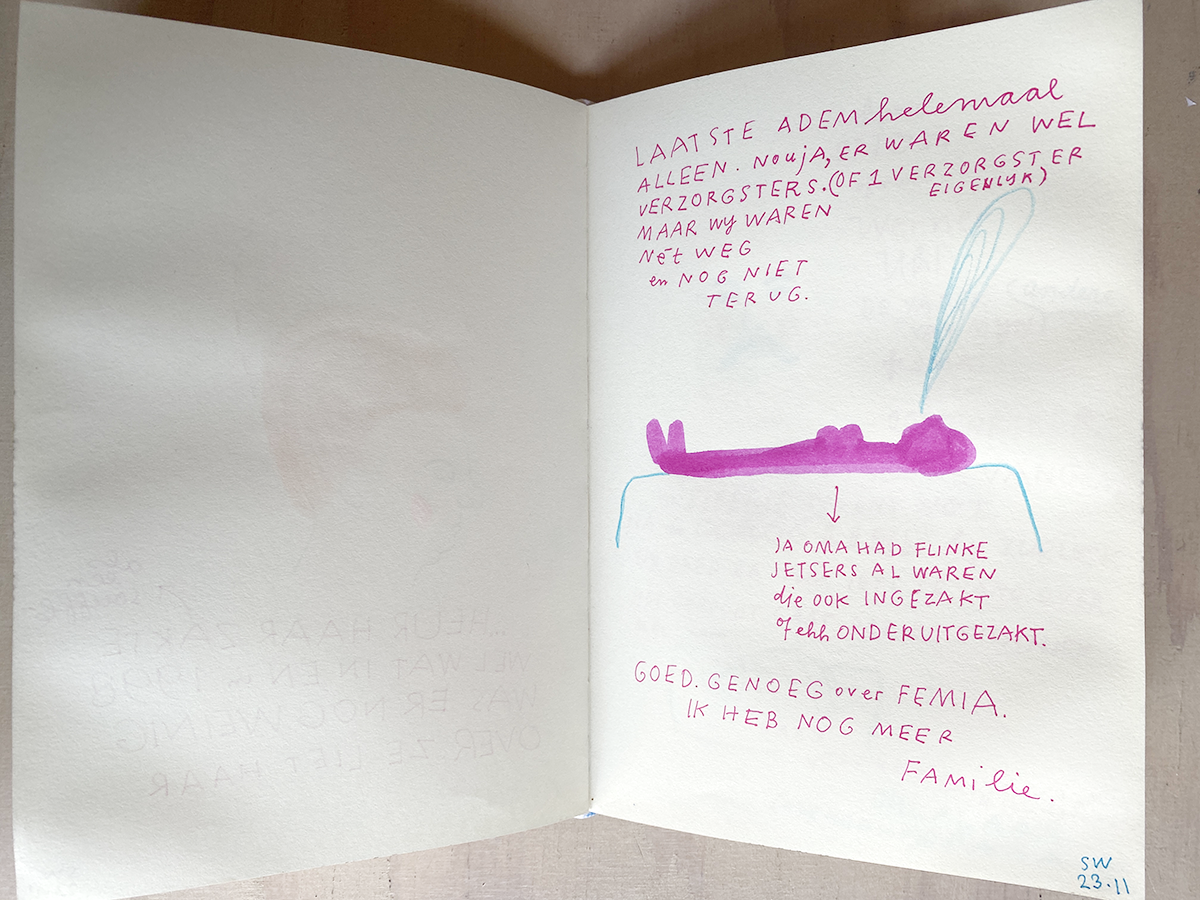 LAATSTE ADEM helemaal
ALLEEN. NOUjA, ER WAREN WEL
VERZORGSTERS. (OF 1 VERZORGSTER
EIGENLYK)
MAAR Wy WAREN
NÉT WEG
en NOG NIET
TERUG.
JA OMA HAD FLINKE
JETSERS AL WAREN
die OOK INGEZAKT
Of ehh ONDERUITGEZAKT.
GOED. GENOEG over FEMIA.
IK HEB NOG MEER
FAMilie.
SW
23.11